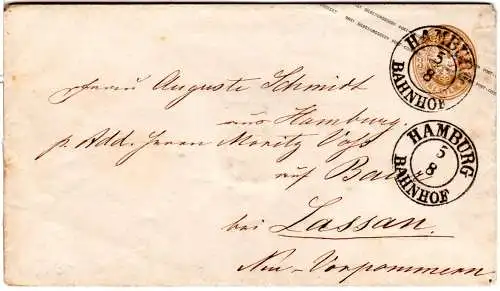 HAMBURG
5
8
BAHNHOF
Auguste Schmidt
aus Hamburg.
p. Add. Herrn Moritz Voss
auf Bau
HAMBURG
5
8
N.
BAHNHOF
bei Lassan.
Neu-Vorpommern